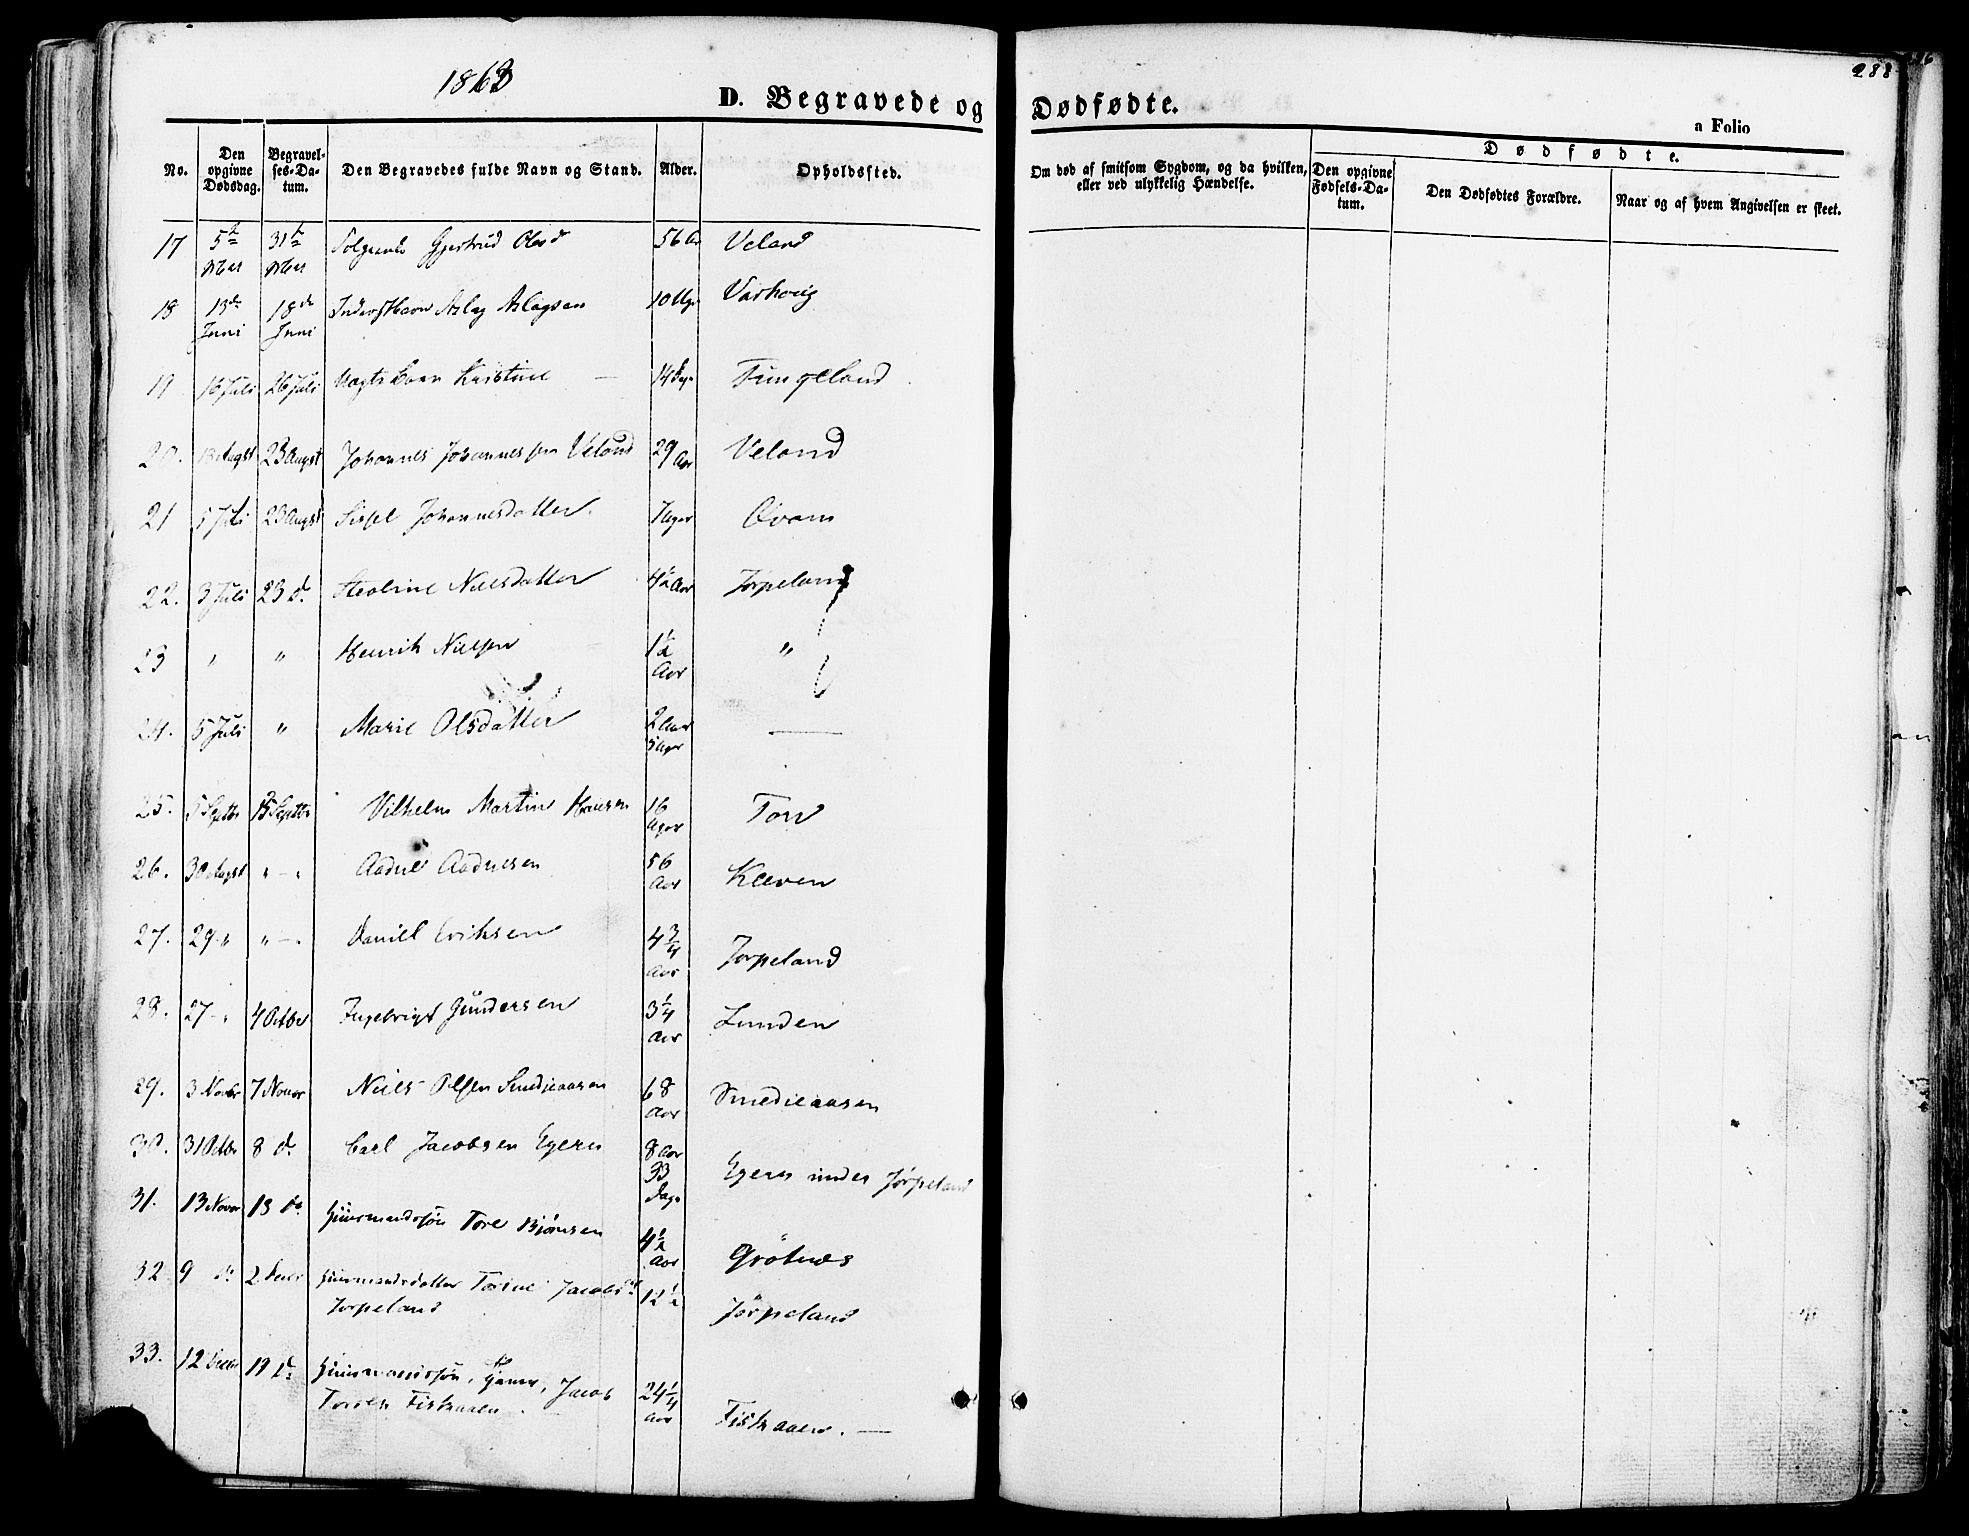 1863
D. Begravede og Dødfødte.
288
a Folio
No.
Den opgivne Dødsdag.
Begravelses-Datum.
Den Begravedes fulde Navn og Stand.
Alder.
Opholdssted.
Om død af smitsom Sygdom, og da hvilken, eller ved ulykkelig Hændelse.
Dødfødte.
Den opgivne Fødsels-Datum.
Den Dødfødtes Forældre.
Naar og af hvem Angivelsen er skeet.
17 5te 31te Gjertrud Olsd 56 Veland
18 13de Juni 18de Juni Aslag Aslagsen 10 Varhoug
19 16 Juli 26 Juli Kristine — 14 Fungeland
20. 13 Augst 23 Augst Johannes Johannessen Veland 29 Aar Veland
21 5 Juli 23 Augst Sissel Johannesdatter. 7 Qvam
22. 3 Juli 23 d. Nielsdatter 4½ Aar Jørpeland
23 " " Henrik Nielsen 1½ Aar "
24. 5 Juli " Marie Olsdatter 2 Aar —
25. 5 Septbr 15 Septbr Vilhelm Martin Hansen 16 Tou
26. 30 Augst " - " Aadne Aadnesen 56 Aar Kleven
27. 29 - " " - " Daniel Eriksen 4¾ Aar Jørpeland
28. 27 - " 4 Octbr Ingebrigt Gundersen 3¼ Aar Lunden
29. 3 Novbr 7 Novbr Niels Olsen Smedieaasen 68 Aar Smedieaasen
30. 31 Octbr 8 d. Carl Jacobsen Egenes 8 Aar 33 Dage under Jørpeland
31. 13 Novbr 13 do Huusmandssøn Tore Bjørnsen 4½ Aar Grötnes
32 9 do 2 Decbr Huusmandsdatter Torine Jacobsd. 12½ Jørpeland
Jørpeland
33. 12 Decbr 19 do Huusmandssøn, Jacob 24¼ Aar Fiskaaen. —
Fiskaaen